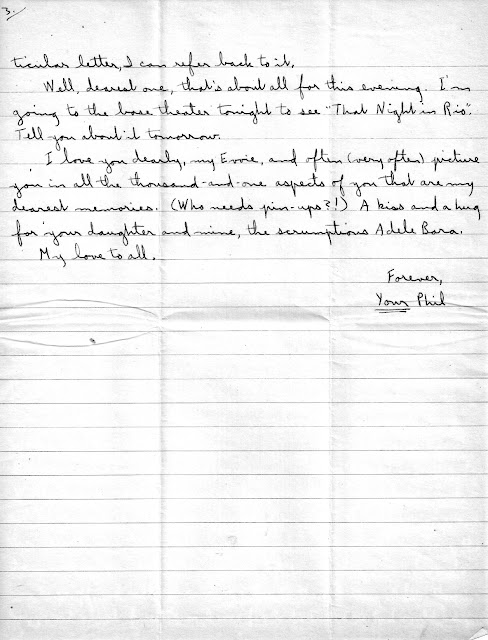 3.
ticular letter, I can refer back to it.
Well, dearest one, that's about all for this evening. I'm
going to the base theater tonight to see "That Night in Rio".
Tell you about it tomorrow.
I love you dearly, my Evvie, and often (very often) picture
you in all the thousand-and-one aspects of you that are my
dearest memories. (Who needs pin-ups?!) A kiss and a hug
for your daughter and mine, the scrumptious Adele Bara.
My love to all.
Forever,
Your Phil